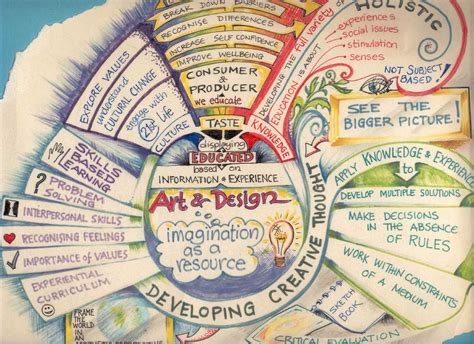 BREAK DOWN BARRIERS
RECOGNISE DIFFERENCES
INCREASE SELF CONFIDENCE
IMPROVE WELLBEING
CONSUMER
&
PRODUCER
we educate
TASTE
displaying
EDUCATED
based on
INFORMATION + EXPERIENCE
EXPLORE VALUES
understand
CULTURAL CHANGE
engage with
21st LIFE
CULTURE
DEVELOPING the full variety of
EDUCATION IS ABOUT
KNOWLEDGE
HOLISTIC
experiences
social issues
stimulation
senses
NOT SUBJECT
BASED!
SEE THE
BIGGER PICTURE!
SKILLS
BASED
LEARNING
? PROBLEM
SOLVING
! INTERPERSONAL SKILLS
RECOGNISING FEELINGS
IMPORTANCE OF VALUES
EXPERIENTIAL
CURRICULUM
Art & Design
imagination
as a
resource
DEVELOPING CREATIVE THOUGHT
APPLY KNOWLEDGE & EXPERIENCE
to
DEVELOP MULTIPLE SOLUTIONS
MAKE DECISIONS
IN THE ABSENCE
OF RULES
WORK WITHIN CONSTRAINTS
OF A MEDIUM
SKETCH
BOOK
CRITICAL EVALUATION
FRAME
THE WORLD
IN AN